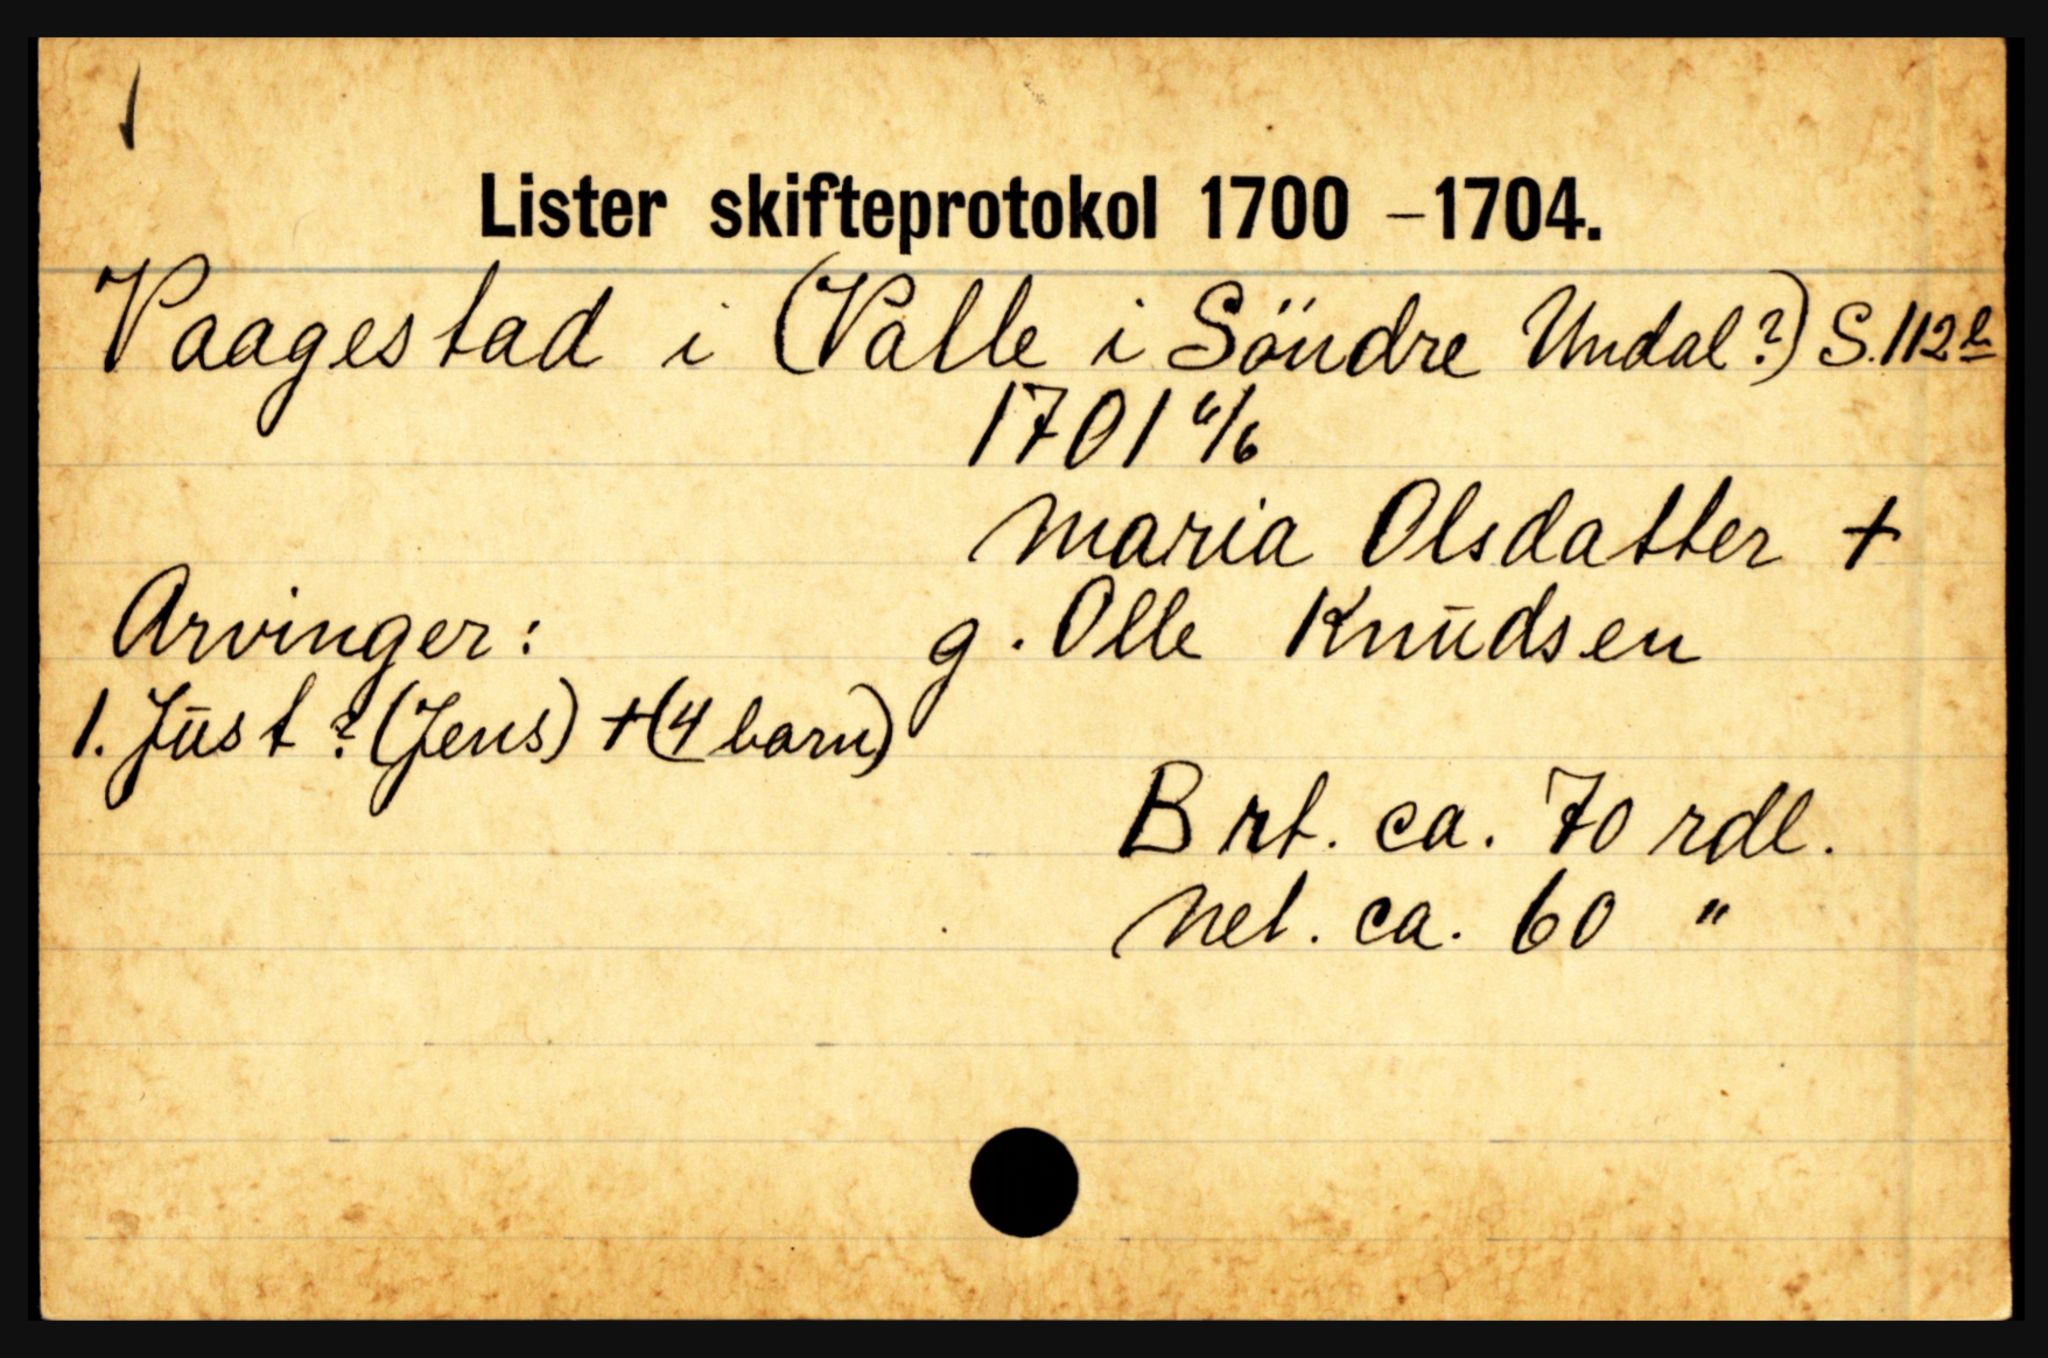 Lister skifteprotokol 1700 – 1704.
Vaagestad i (Valle i Söndre Undal?) S. 112 b
1701 6/6
Maria Olsdatter +
Arvinger: g. Olle Knudsen
1. Just? (Jens) + (4 barn)
Brt. ca. 70 rdl.
Net. ca. 60 "